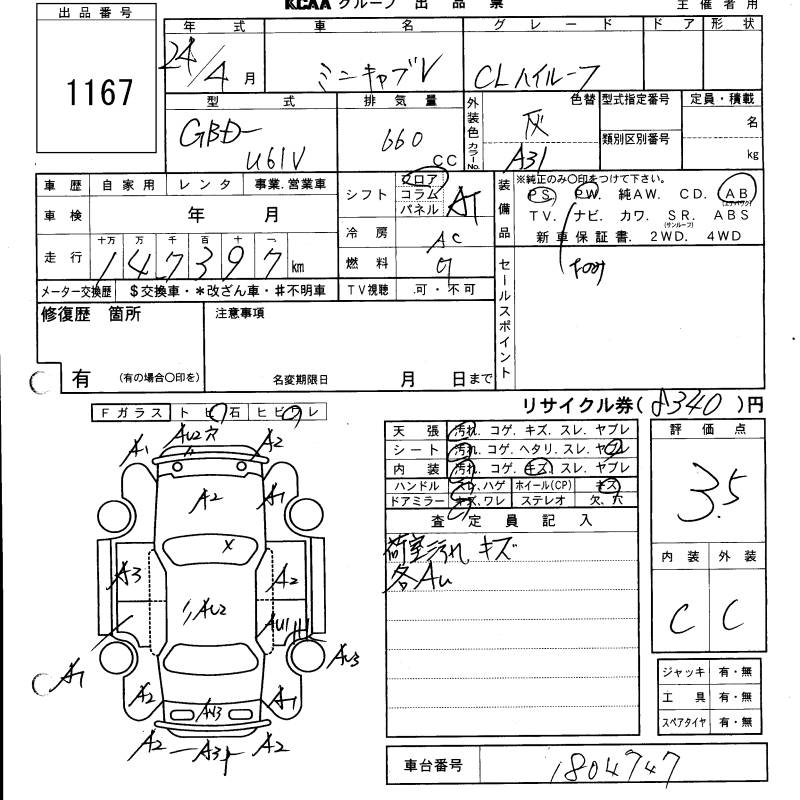 KCAA グループ 出品票
主催者用
出品番号
1167
年式 車名 グレード ドア 形状
24/4月 ミニキャブV CLハイルーフ
型式 排気量 外装色 カラーNo. 色替 型式指定番号 定員・積載
GBD-U61V 660 CC 灰 A31 類別区別番号 名 kg
車歴 自家用 レンタ 事業.営業車
車検 年 月
走行 十万 万 千 百 十 一
147397km
メーター交換歴 $交換車・*改ざん車・#不明車
シフト フロア コラム パネル AT
冷房 AC
燃料 ガ
TV視聴 .可・不可
装備品 ※純正のみ〇印をつけて下さい。
PS. PW. 純AW. CD. AB (エアバック)
TV. ナビ. カワ. SR. ABS
(サンルーフ)
新車保証書. 2WD. 4WD
セールスポイント
修復歴 箇所
有 (有の場合〇印を)
注意事項
名変期限日 月 日まで
リサイクル券( 8340 )円
Fガラス トビ石 ヒビワレ
天張 汚れ. コゲ. キズ. スレ. ヤブレ
シート 汚れ. コゲ. ヘタリ. スレ. ヤブレ
内装 汚れ. コゲ. キズ. スレ. ヤブレ
ハンドル スレ.ハゲ ホイール(CP) キズ
ドアミラー キズ.ワレ ステレオ 欠.穴
査定員記入
荷室汚れ キズ
各AU
評価点
3.5
内装 外装
C C
ジャッキ 有・無
工具 有・無
スペアタイヤ 有・無
車台番号 1804747
A1 AU2穴 A2
A2 A1
X
A3 A2
AU2 AU1
A1 AU3
A2 AU3 A1
A2 A3 A2